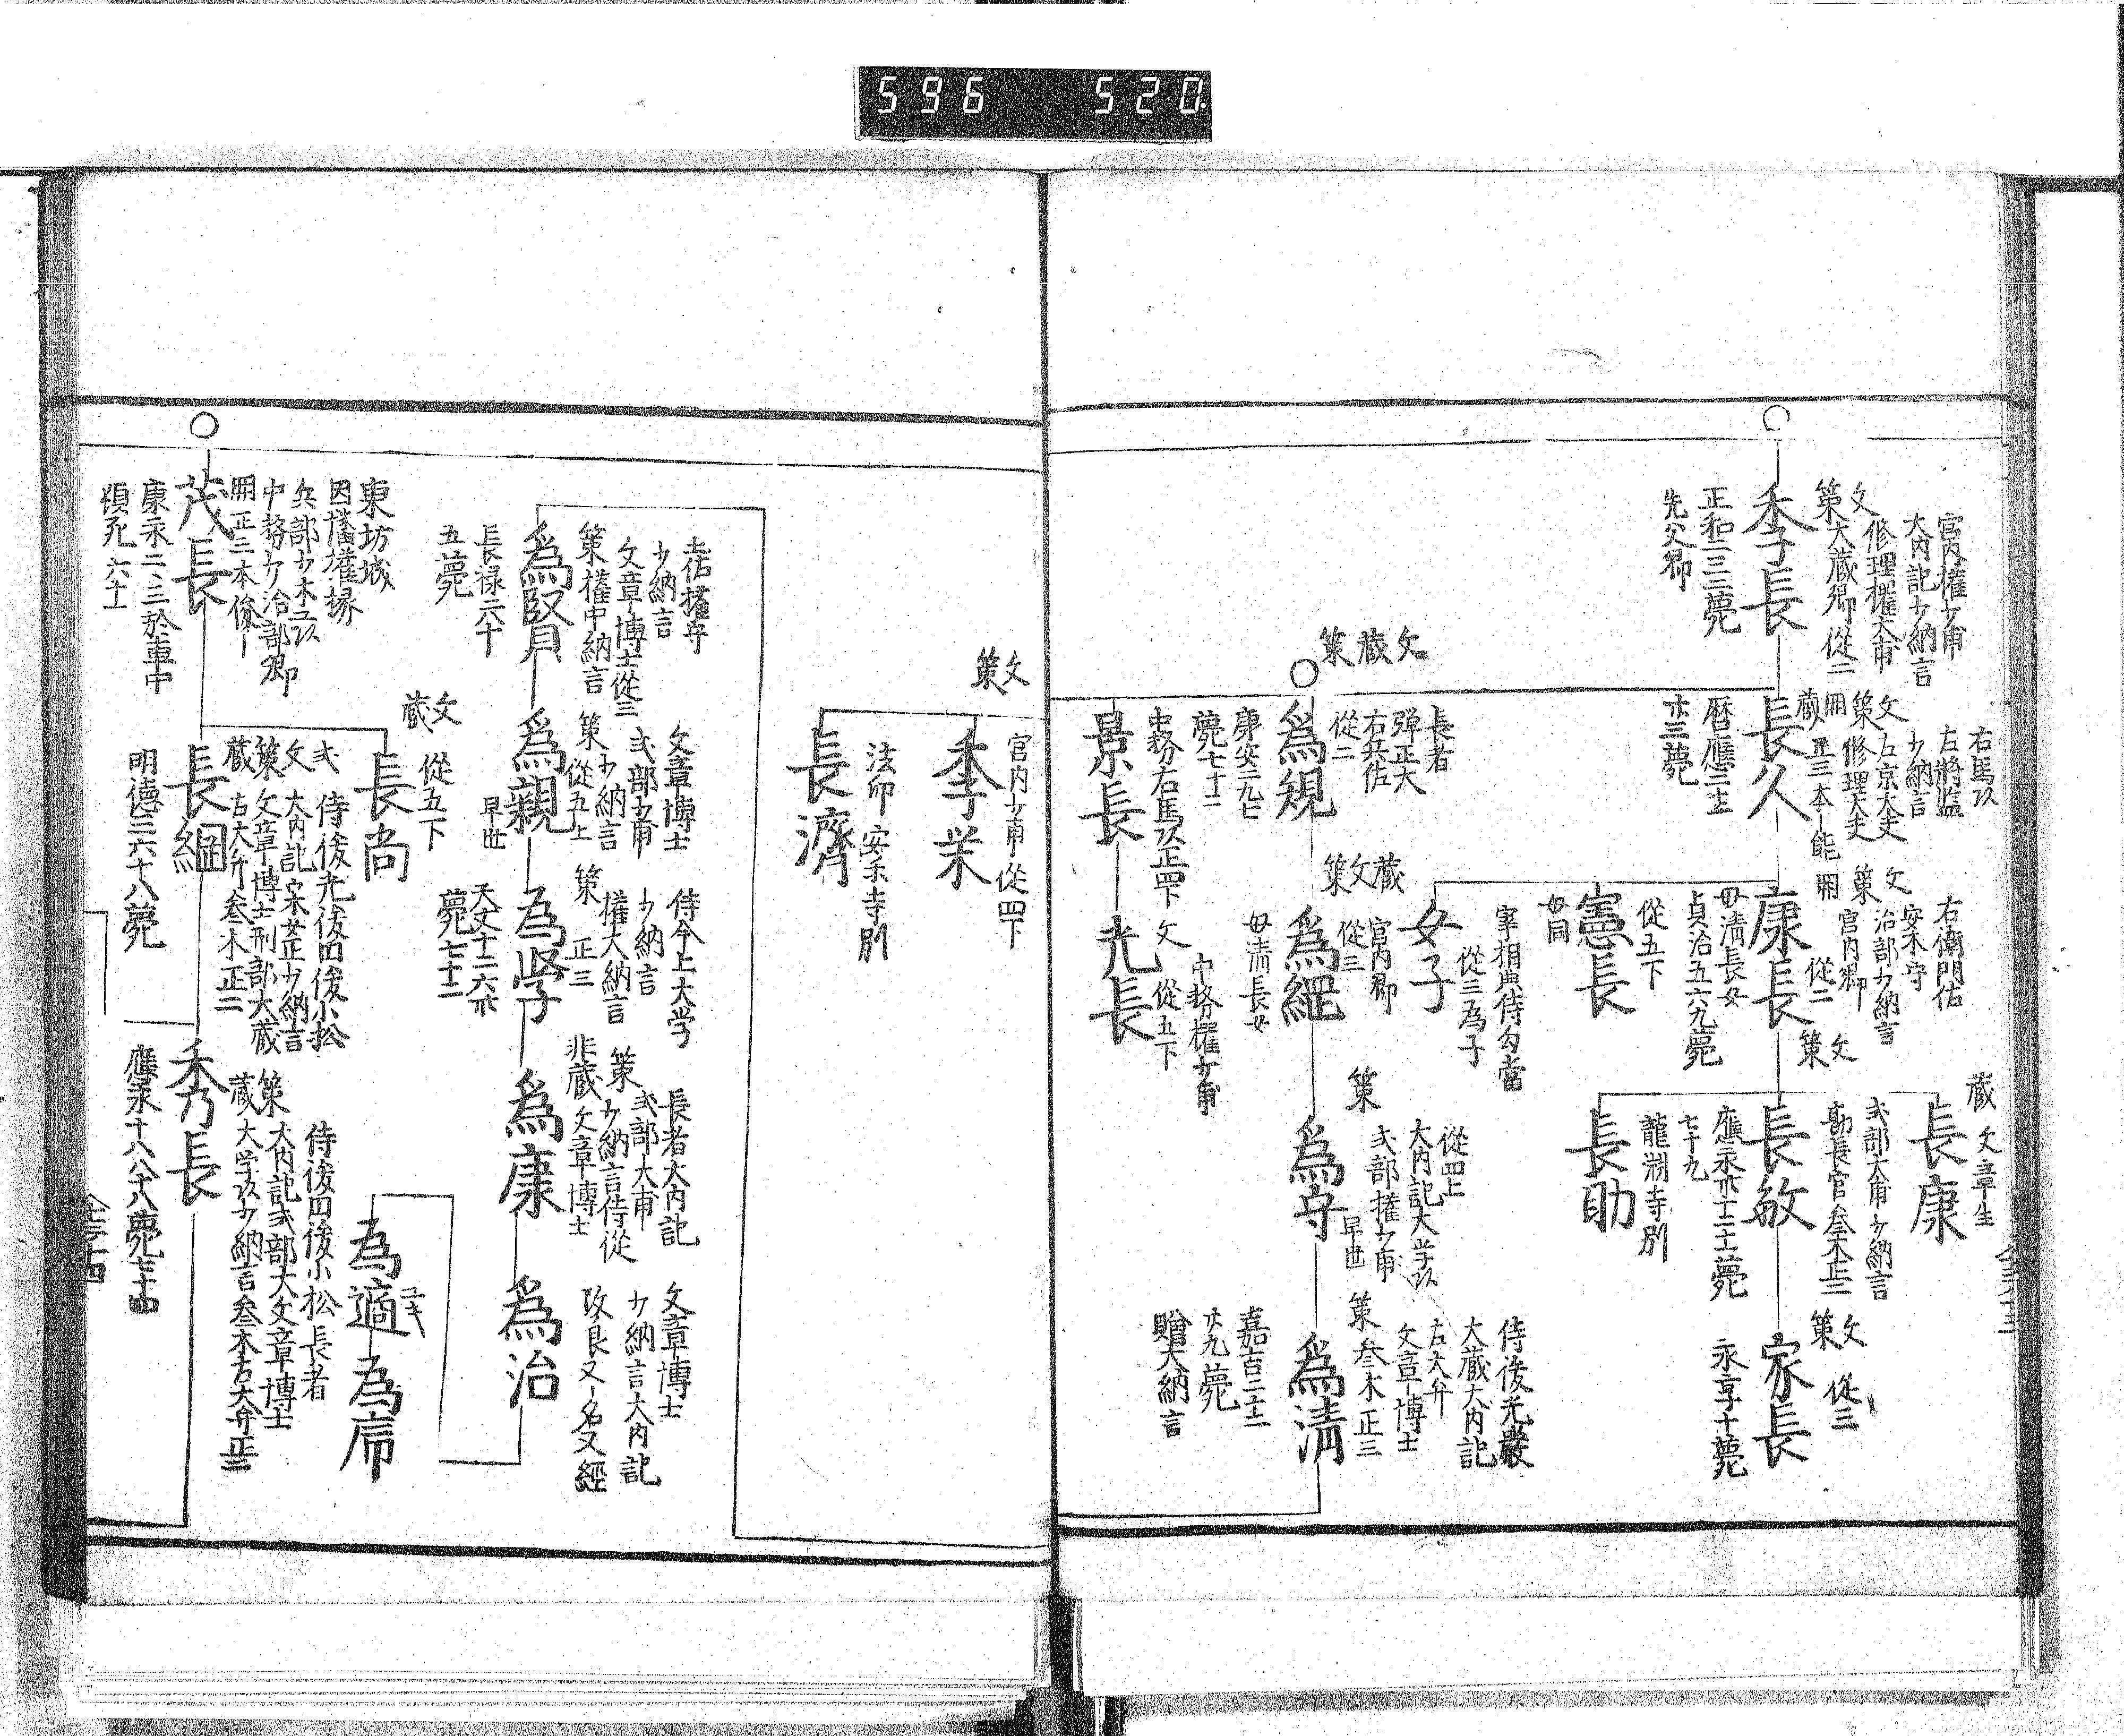 596 520.
宮内權少甫
大内記少納言
修理權大甫
文
策大蔵卿従二
季長
正和二三三薨
先父卿
右馬以
左將監
少納言
文左京大夫
策修理大夫
開正三本能
蔵
長久
暦應二
廿三薨
右衛門佐
安木守
治部少納言
文宮内卿
策
開従二
康長
母清長女
貞治五六九薨
憲長
従五下
母同
女子
宰相典侍勾當
従三為子
蔵文章生
長康
式部大甫少納言
勘長官叅木正二
文
策
長敏
應永廿二薨
七十九
長助
龍朔寺別
文
策従三
家長
永享十薨
文
蔵
策
長者
弾正大
右兵佐
従二
為視
康安元九七
薨七十二
蔵
文
策
宮内卿
従三
為經
母清長女
策
従四上
大内記大学以
式部權少甫
早世
為守
侍後光嚴
大蔵大内記
右大弁
文章博士
策叅木正三
為清
嘉吉二十二
廿九薨
贈大納言
景長
中務右馬以正四下
光長
文
中務權少甫
従五下
文
策
宮内少甫従四下
季栄
長濟
法印安禾寺別
土佐權守
少納言
文章博士従三
策權中納言
為賢
長禄二六十
五薨
文章博士
式部少甫
少納言
策従五上
早世
為親
侍今上大学
少納言
權大納言
策正三
為学
天文十二六廿
薨七十二
長者大内記
式部大甫
策少納言侍従
非蔵文章博士
為康
文章博士
少納言大内記
改良又名又經
為治
為適
為庸
東坊城
因播權掾
兵部少木工以
中務少治部卿
開正三本俊
茂長
康永二二三於車中
頓死六十
文
蔵
従五下
長尚
式
文
策
蔵
侍後光後円後小松
大内記宋女正少納言
文章博士刑部大蔵
右大弁叅木正二
長綱
明徳三六十八薨
策
蔵
侍後円後小松長者
大内記式部大文章博士
大学以少納言叅木右大弁正二
秀長
應永十八八十八薨七十四